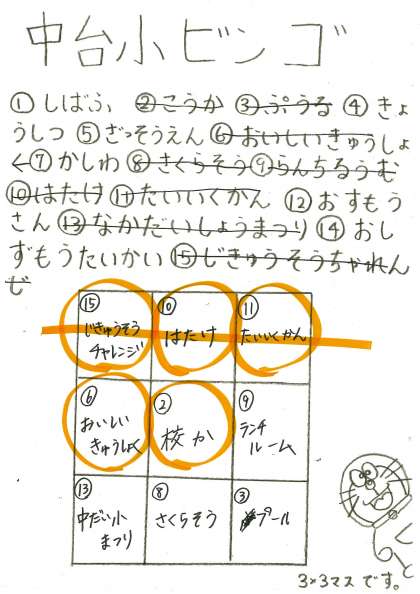 中台小ビンゴ
①しばふ ②こうか ③ぷうる ④きょ
うしつ ⑤ざっそうえん ⑥おいしいきゅうしょ
く⑦かしわ ⑧さくらそう⑨らんちるうむ
⑩はたけ ⑪たいいくかん ⑫おすもう
さん⑬なかだいしょうまつり⑭おし
ずもうたいかい⑮じきゅうそうちゃれん
じ
⑮ ⑩ ⑪
じきゅうそう はたけ たいいくかん
チャレンジ
⑥ ② ⑨
おいしい 校か ランチ
きゅうしょく ルーム
⑬ ⑧ ③
中だい小 さくらそう プール
まつり
3×3マスです。